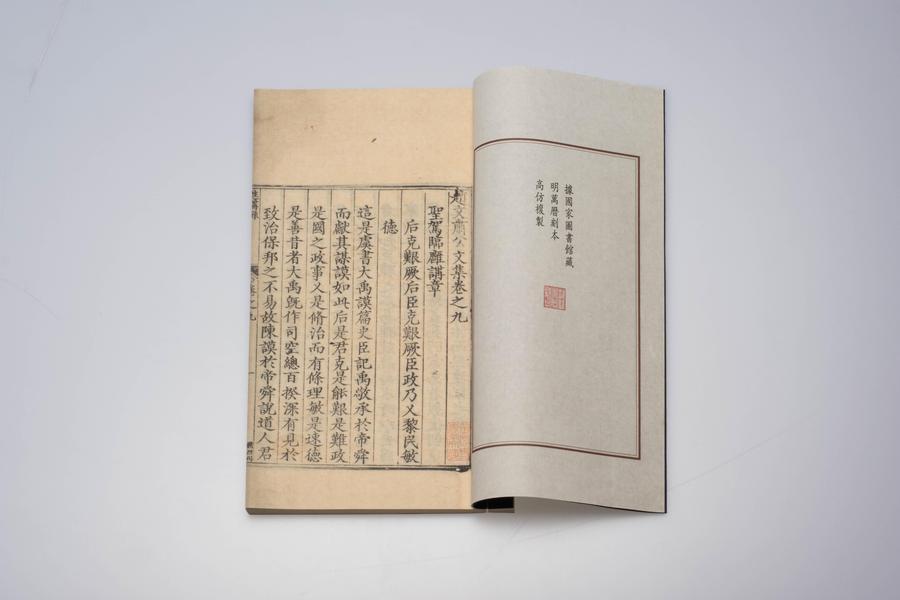 據國家圖書館藏
明萬曆刻本
高仿複製
文肅公文集卷之九
聖駕臨廱講章
后克艱厥后臣克艱厥臣政乃乂黎民敏
德
這是虞書大禹謨篇史臣記禹敬承於帝舜
而獻其謀謨如此后是君克是能艱是難政
是國之政事乂是脩治而有條理敏是速德
是善昔者大禹旣作司空總百揆深有見於
致治保邦之不易故陳謨於帝舜說道人君
卷之九